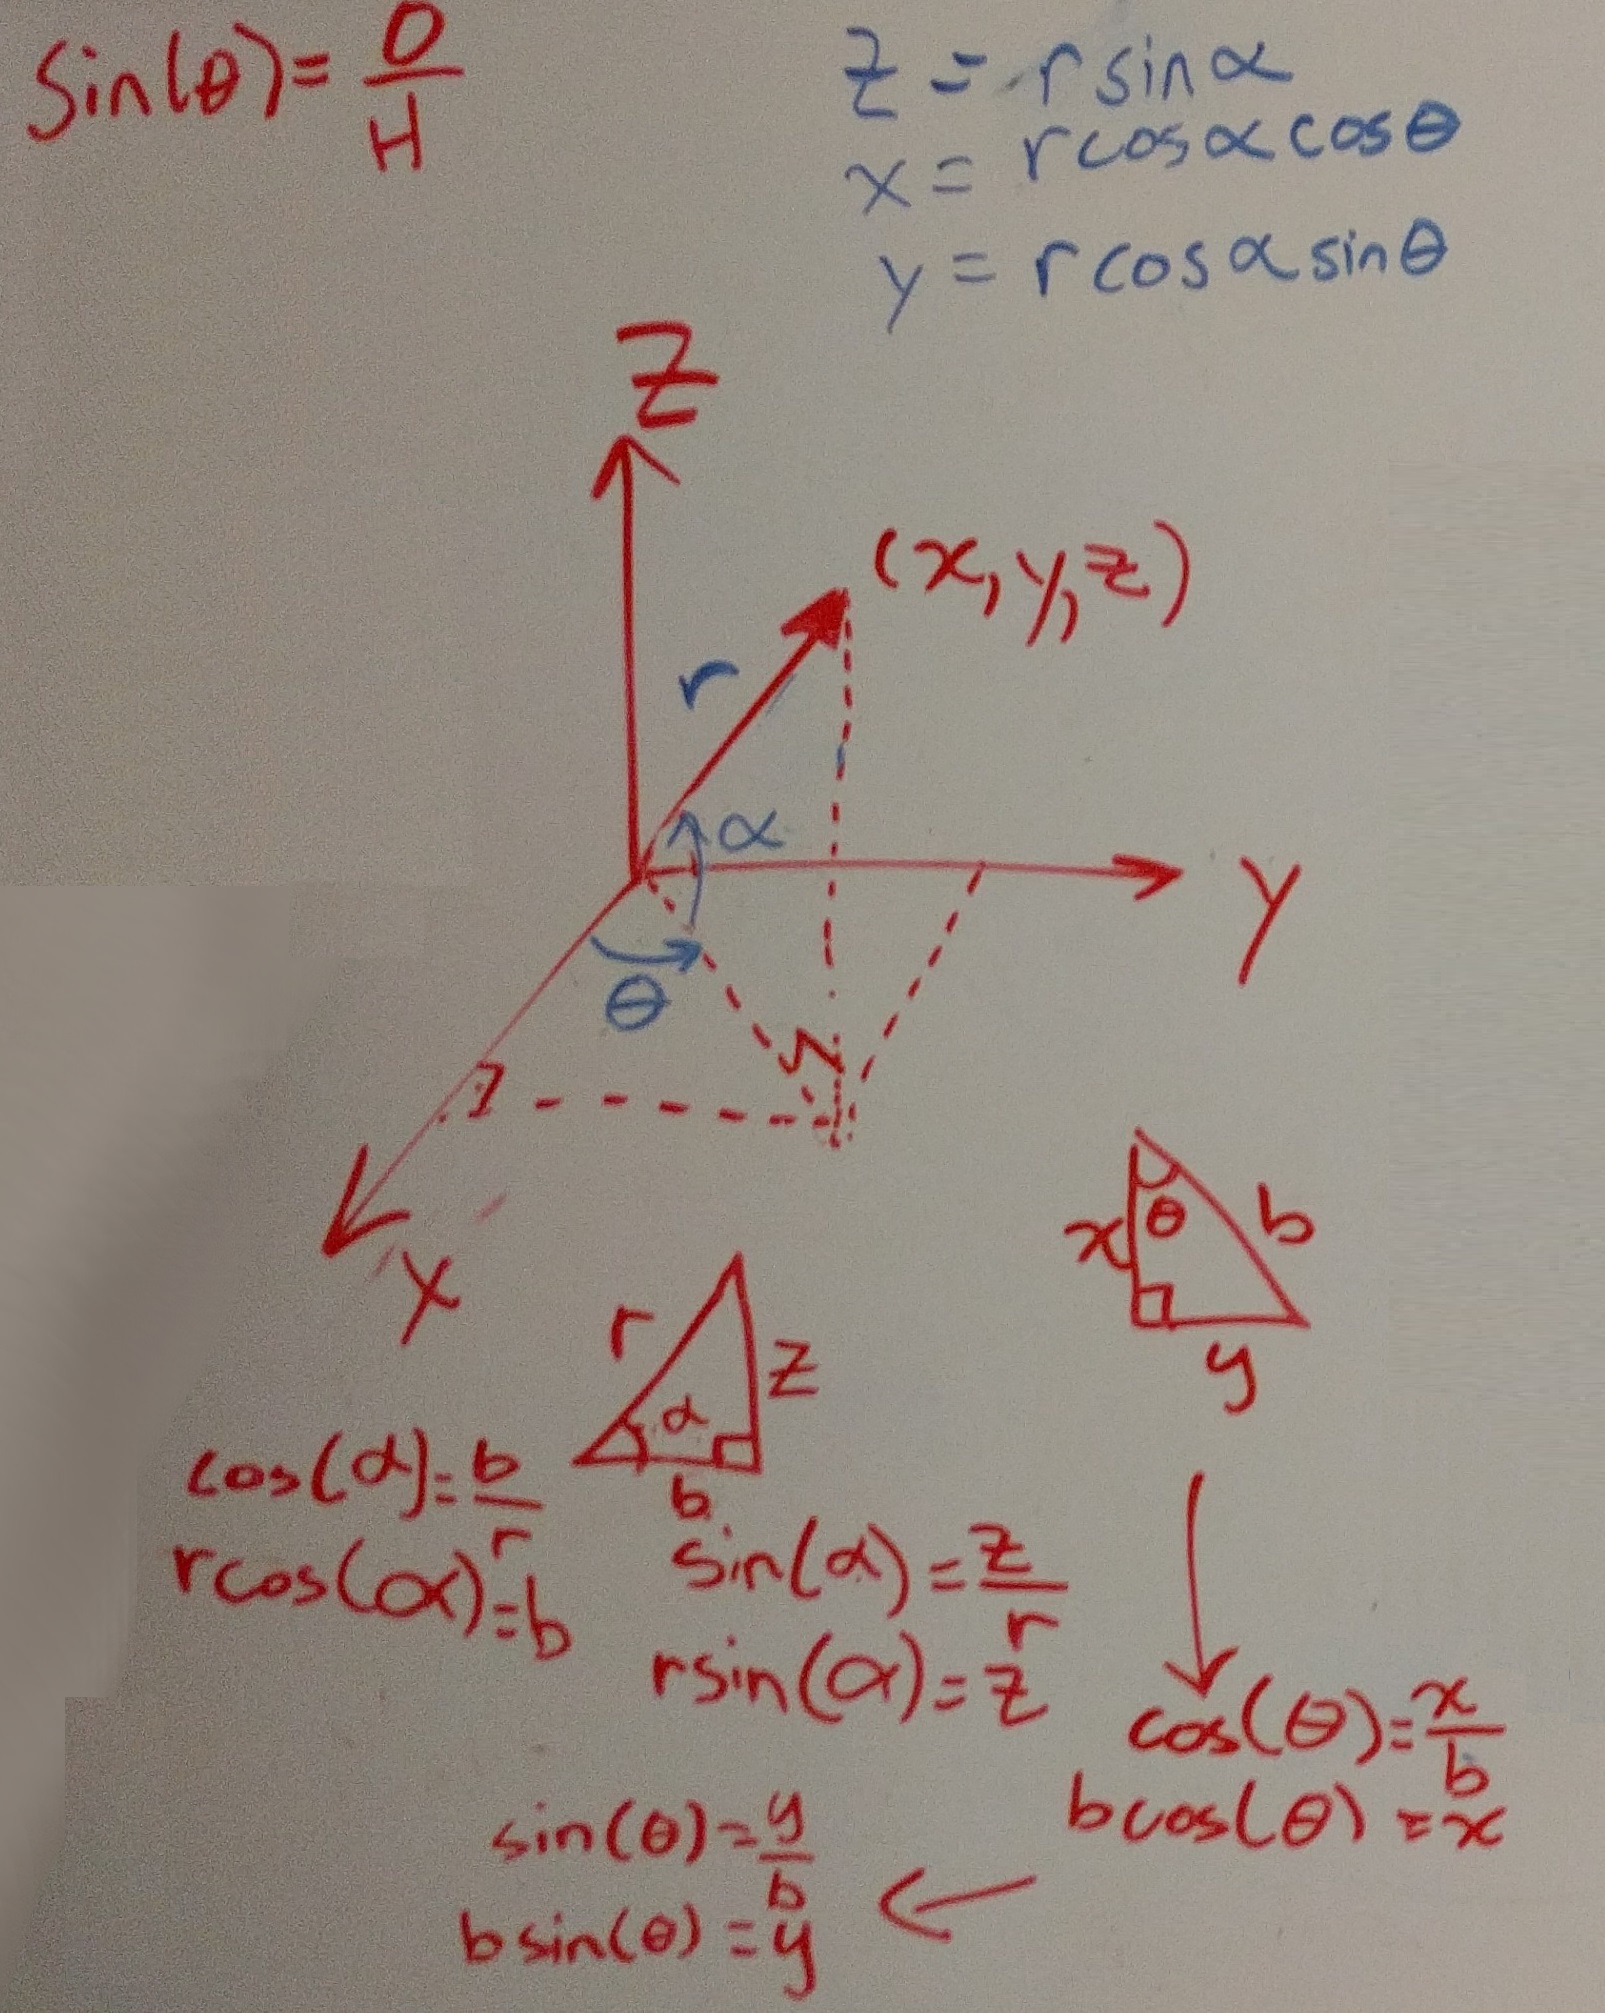 Sin(θ)=O/H
z = r sinα
x = r cosα cosθ
y = r cosα sinθ
Z
(x, y, z)
r
α
Y
θ
X
x
θ
b
y
r
z
α
b
cos(α)=b/r
rcos(α)=b
sin(α)=z/r
rsin(α)=z
cos(θ)=x/b
bcos(θ)=x
sin(θ)=y/b
bsin(θ)=y